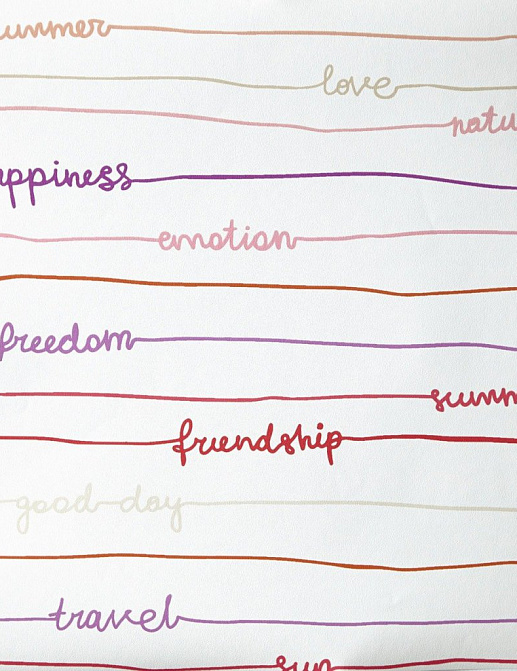 ummer
love
natu
appiness
emotion
freedom
summ
friendship
good day
travel
sun